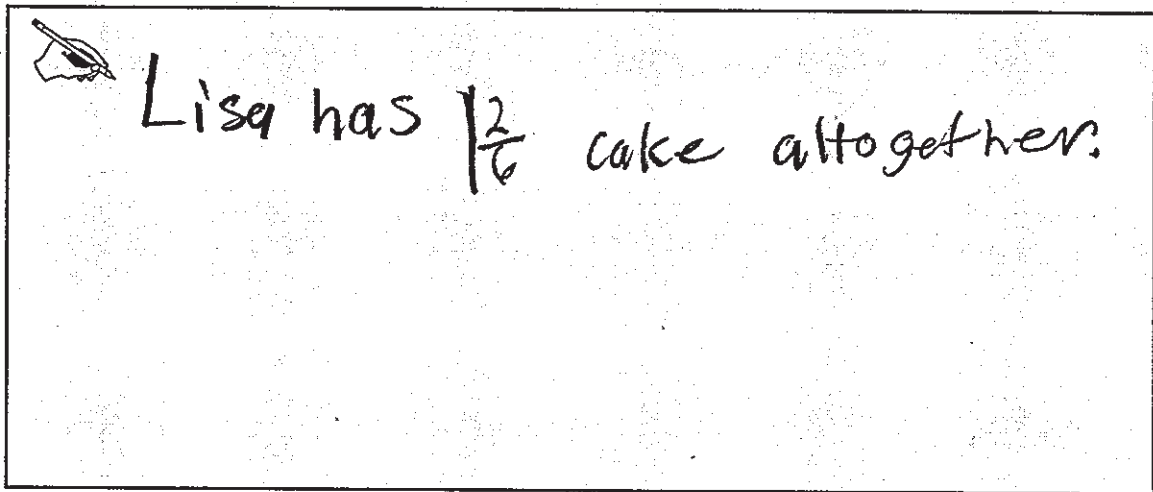 Lisa has 1 2/6 cake altogether.